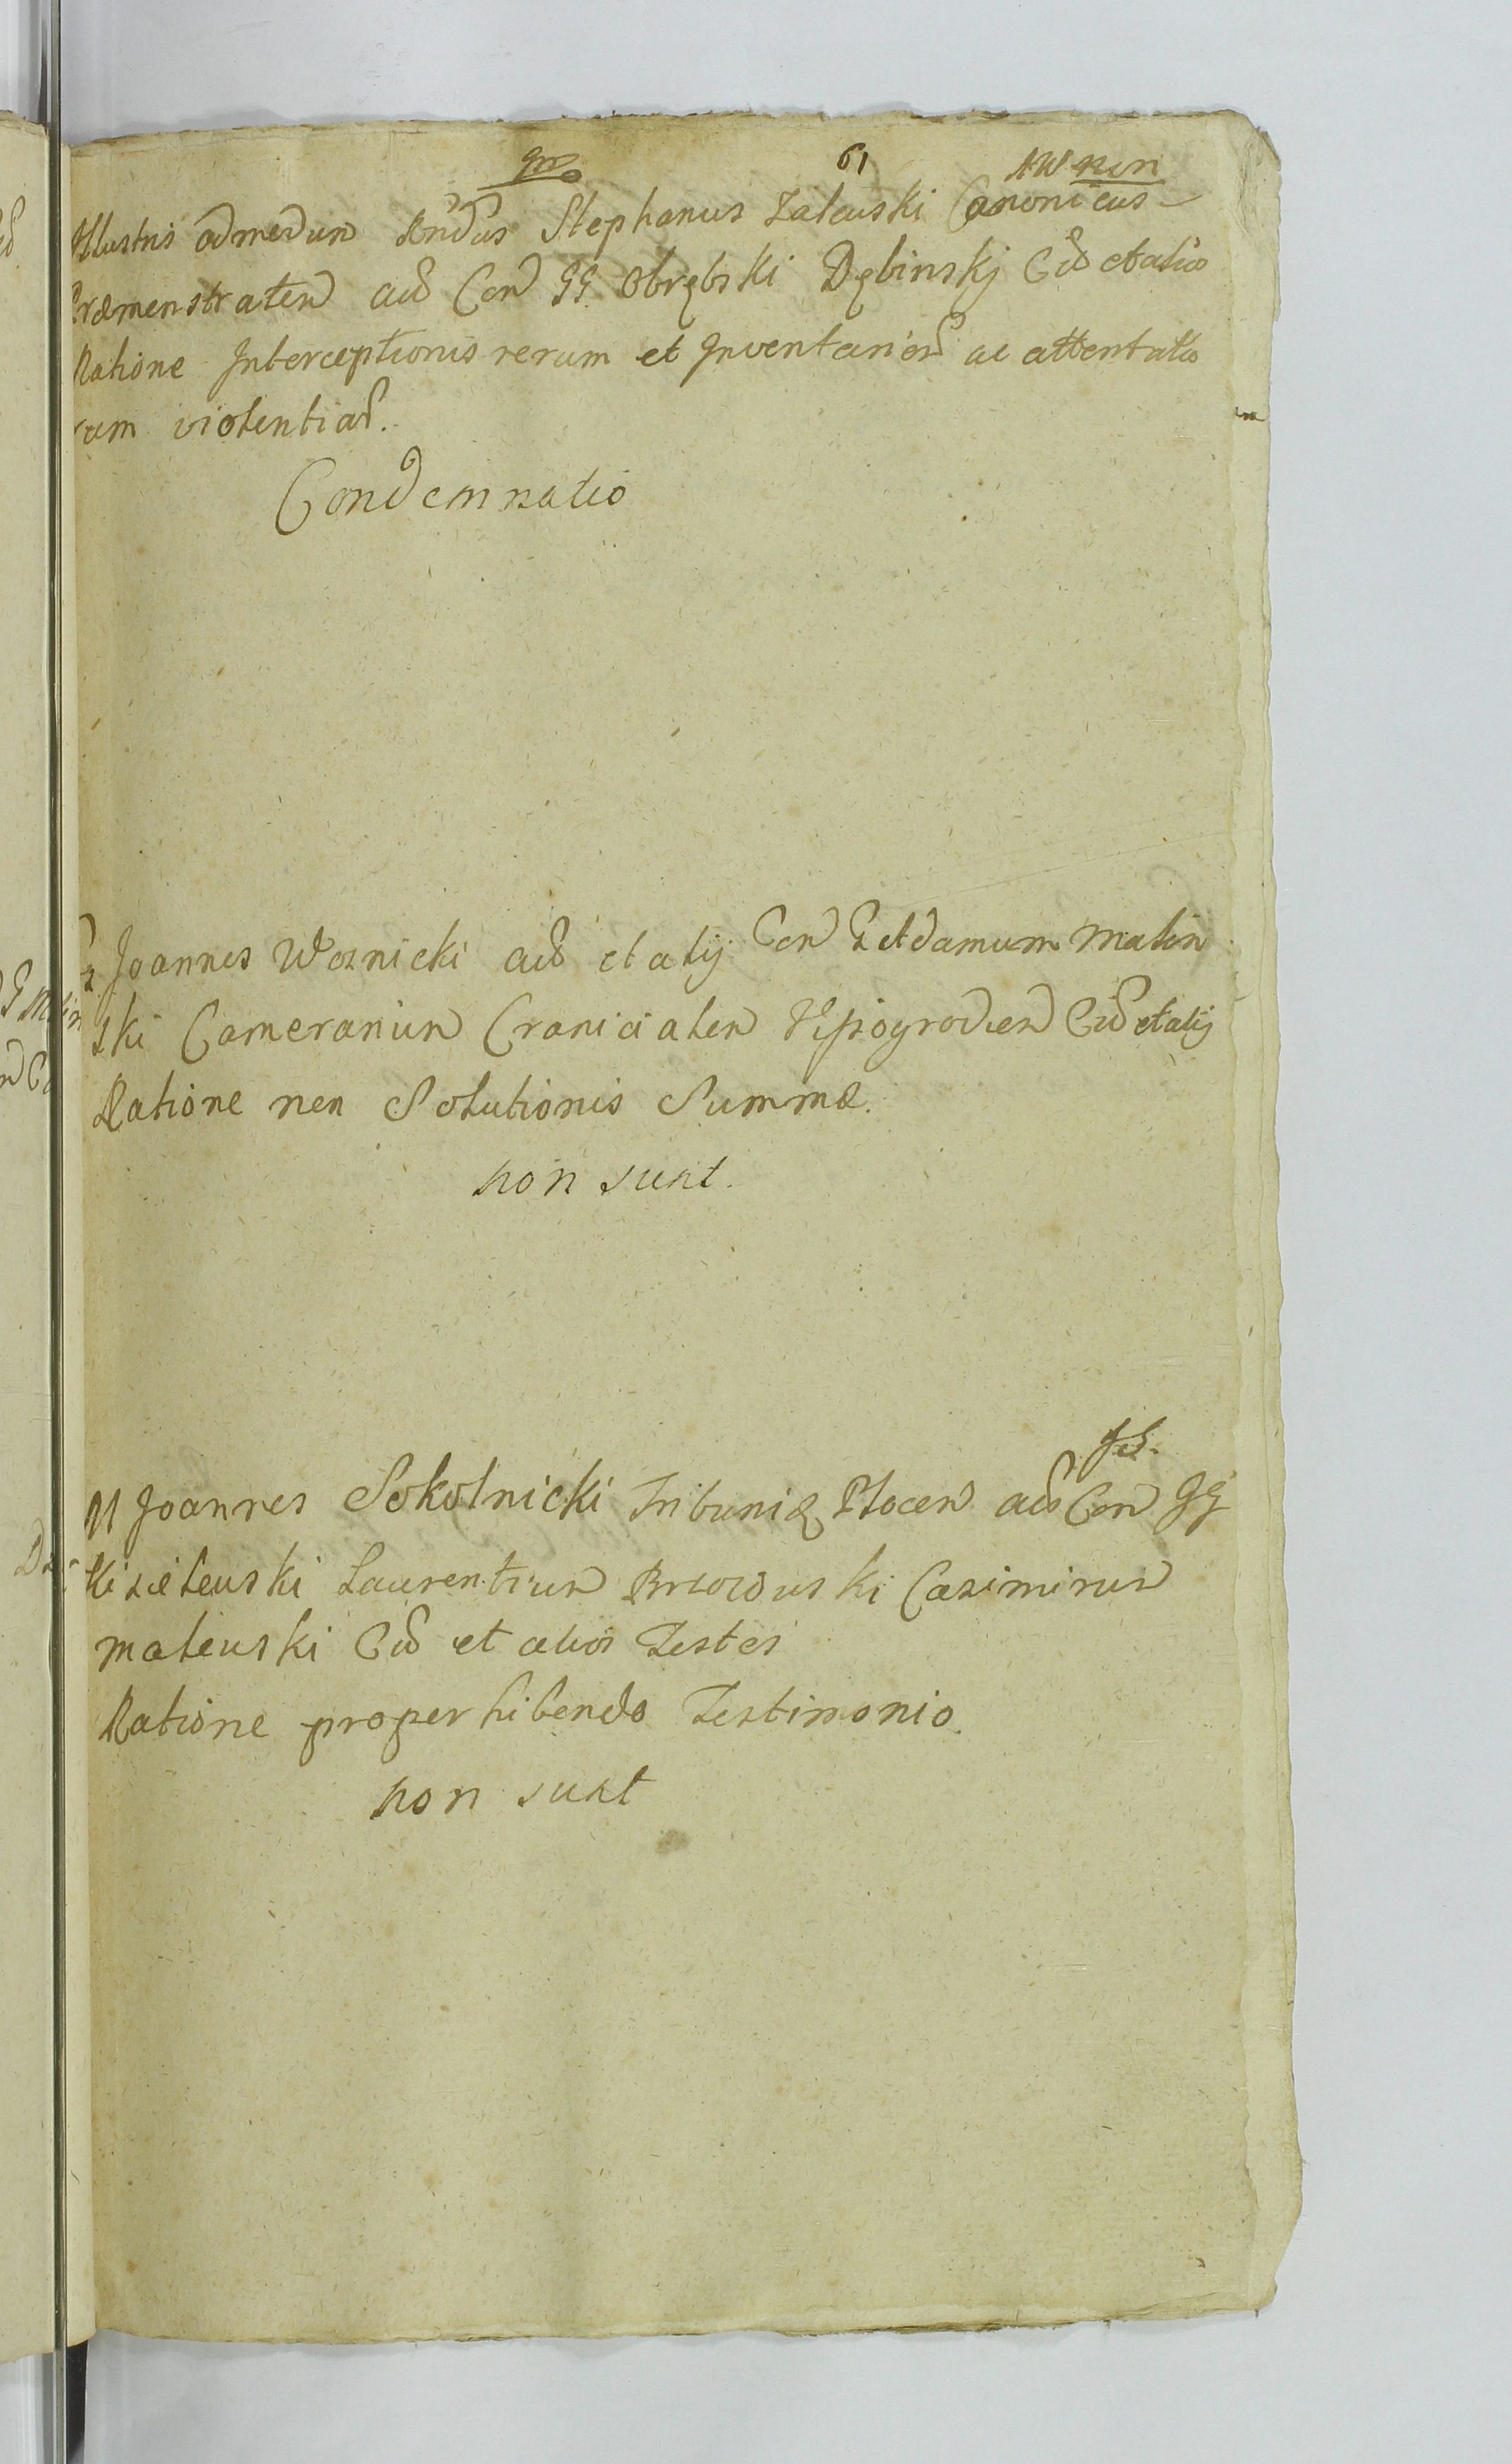 gro 61
Illustris admodun Rndus Stephanus Zaleuski Canonicus
Præmenstraten aud Con GG. Obrębski Dębinskj Cid et alios
Ratione Interceptionis rerum et Inventarior ac attentato
rum violentiar.
Condemnatio
G Joannes Woznicki aud et alij Con G Adamum Malin
ski Camerariun Craniciaten Wyszogrodien Cid et alij
Ratione non Solutionis Summæ.
non sunt.
M Joannes Sokolnicki Tribunid Plocen aud Con GG
Kisieleuski Laurentiun Brzozouski Casimirun
Maleuski Cid et alios Testes
Ratione pro perhibendo Testimonio.
non sunt